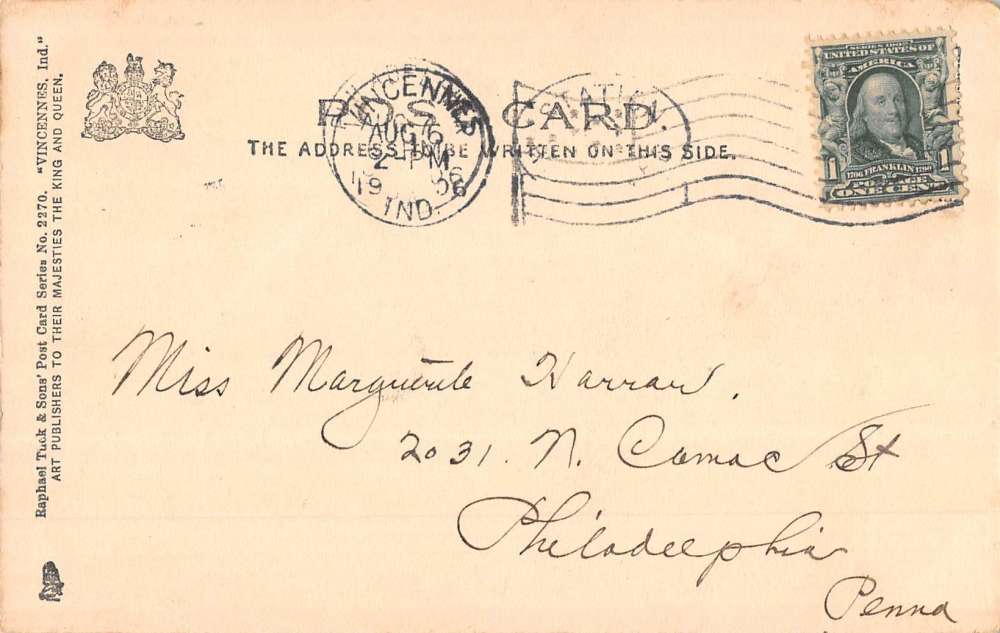 Raphael Tuck & Sons' Post Card Series No. 2270. "VINCENNES, Ind."
ART PUBLISHERS TO THEIR MAJESTIES THE KING AND QUEEN.
POST CARD.
THE ADDRESS TO BE WRITTEN ON THIS SIDE.
VINCENNES
AUG 6
2 - PM
1906
IND.
STATION
SERIES 1902
UNITED STATES OF
AMERICA
1 1
1706 FRANKLIN 1790
POSTAGE
ONE CENT
Miss Marguerite
2031. N. Camac St
Philadelphia
Penna